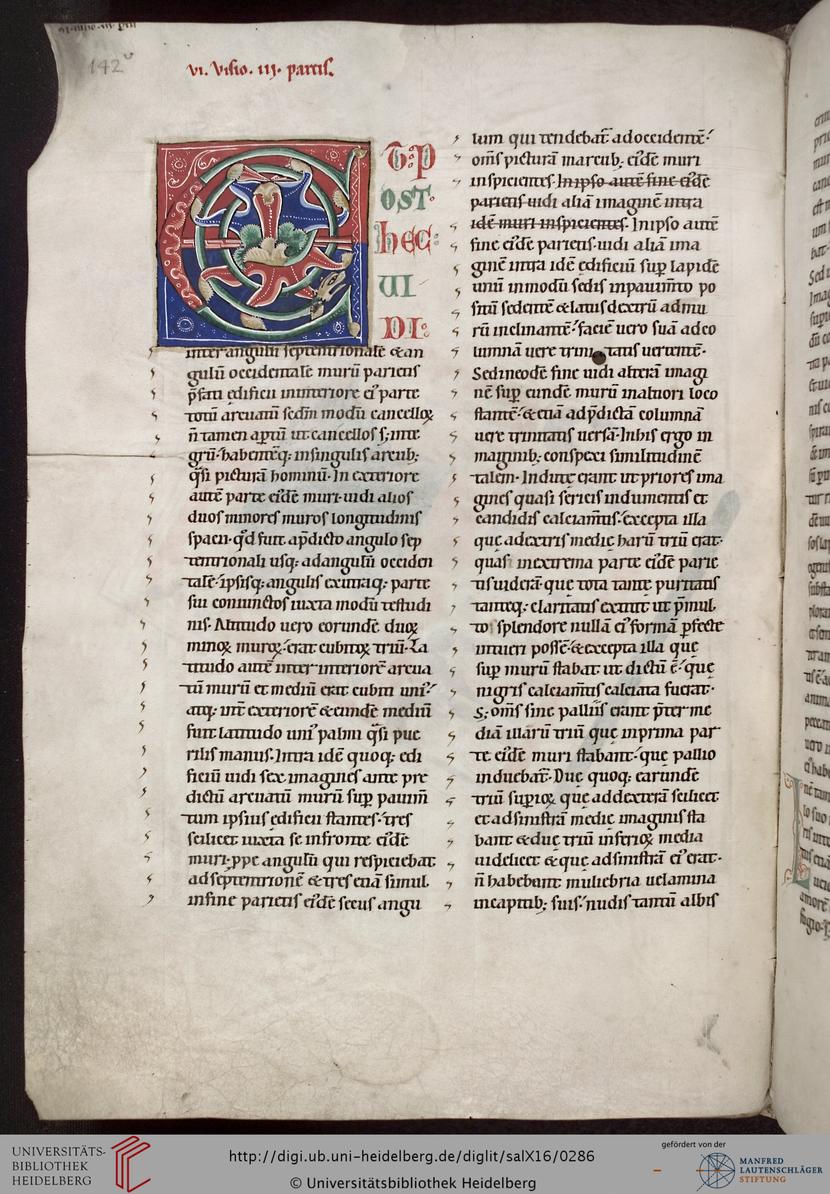 142v
vi. Visio. iij. partis.
ET: P
OST·
hec:
UI
DI:
inter angulū septentrionalē & an
gulū occidentalē murū parietis
p̄fati edificii interiore ei᷒ parte
totū arcuatū sedm̄ modū cancelloꝝ
n̄ tamen aptū ut cancelli s; inte
grū· habentēq; in singulis arcub;
q̄si picturā hominū· In exteriore
autē parte eidē muri uidi alios
duos minores muros longitudinis
spacii· qd fuit ap̄dicto angulo sep
tentrionali usq; ad angulū occiden
talē· ipsisq; angulis ex utraq; parte
sui coniunctos iuxta modū testudi
nis. Altitudo uero eorundē duoꝝ
minoꝝ muroꝝ· erat cubitoꝝ triū· La
titudo autē inter interiorē arcua
tū murū et mediū erat cubiti uni᷒·
atq; int̄ exteriorē & eundē mediū
fuit latitudo uni᷒ palmi q̄si pue
rilis manus. Intra idē quoq; edi
ficiū uidi sex imagines ante pre
dictū arcuatū murū sup pauim̄
tum ipsius edificii stantes· tres
scilicet iuxta se in fronte eidē
muri· ppe angulū qui respiciebat
ad septemtrionē & tres etiā simul
in fine parietis eidē secus angu
lum qui tendebat ad occidentē·
om̄s picturā in arcub; eidē muri
inspicientes· In ipso autē fine eidē
parietis uidi aliā imaginē intra
idē muri inspicientes. In ipso autē
fine eidē parietis uidi aliā ima
ginē intra idē edificiū sup lapidē
unū in modū sedis in pauim̄to po
sitū sedentē & latus dextrū ad mu
rū inclinantē· faciē uero suā ad co
lumnā uere trinitatis uertentē·
Sed in eodē fine uidi alterā imagi
nē sup eundē murū in altiori loco
stantē· & etiā ad p̄dictā columnā
uere trinitatis uersā· In his ergo in
maginib; conspexi similitudinē
talem· Indute erant ut priores ima
gines quasi sericis indumentis et
candidis calciam̄tis· excepta illa
que a dextris medie harū triū erat·
quas in extrema parte eidē parie
tis uiderā· que tota tante puritatis
tanteq; claritatis extitit ut p̄ mul
to splendore nullā ei᷒ formā pfecte
intueri possē· & excepta illa que
sup murū stabat ut dictū ē· que
nigris calciam̄tis calciata fuerat·
S; om̄s sine palliis erant p̄ter me
diā illarū triū que in prima par
te eidē muri stabant· que pallio
induebat̄· Due quoq; earundē
triū supioꝝ que ad dexterā scilicet
et ad sinistrā medie imaginis sta
bant & due triū inferioꝝ media
uidelicet & que ad sinistrā ei᷒ erat·
n̄ habebant muliebria uelamina
in capitib; suis· nudis tantū albis
UNIVERSITÄTS-
BIBLIOTHEK
HEIDELBERG
http://digi.ub.uni-heidelberg.de/diglit/salX16/0286
© Universitätsbibliothek Heidelberg
gefördert von der
MANFRED
LAUTENSCHLÄGER
STIFTUNG